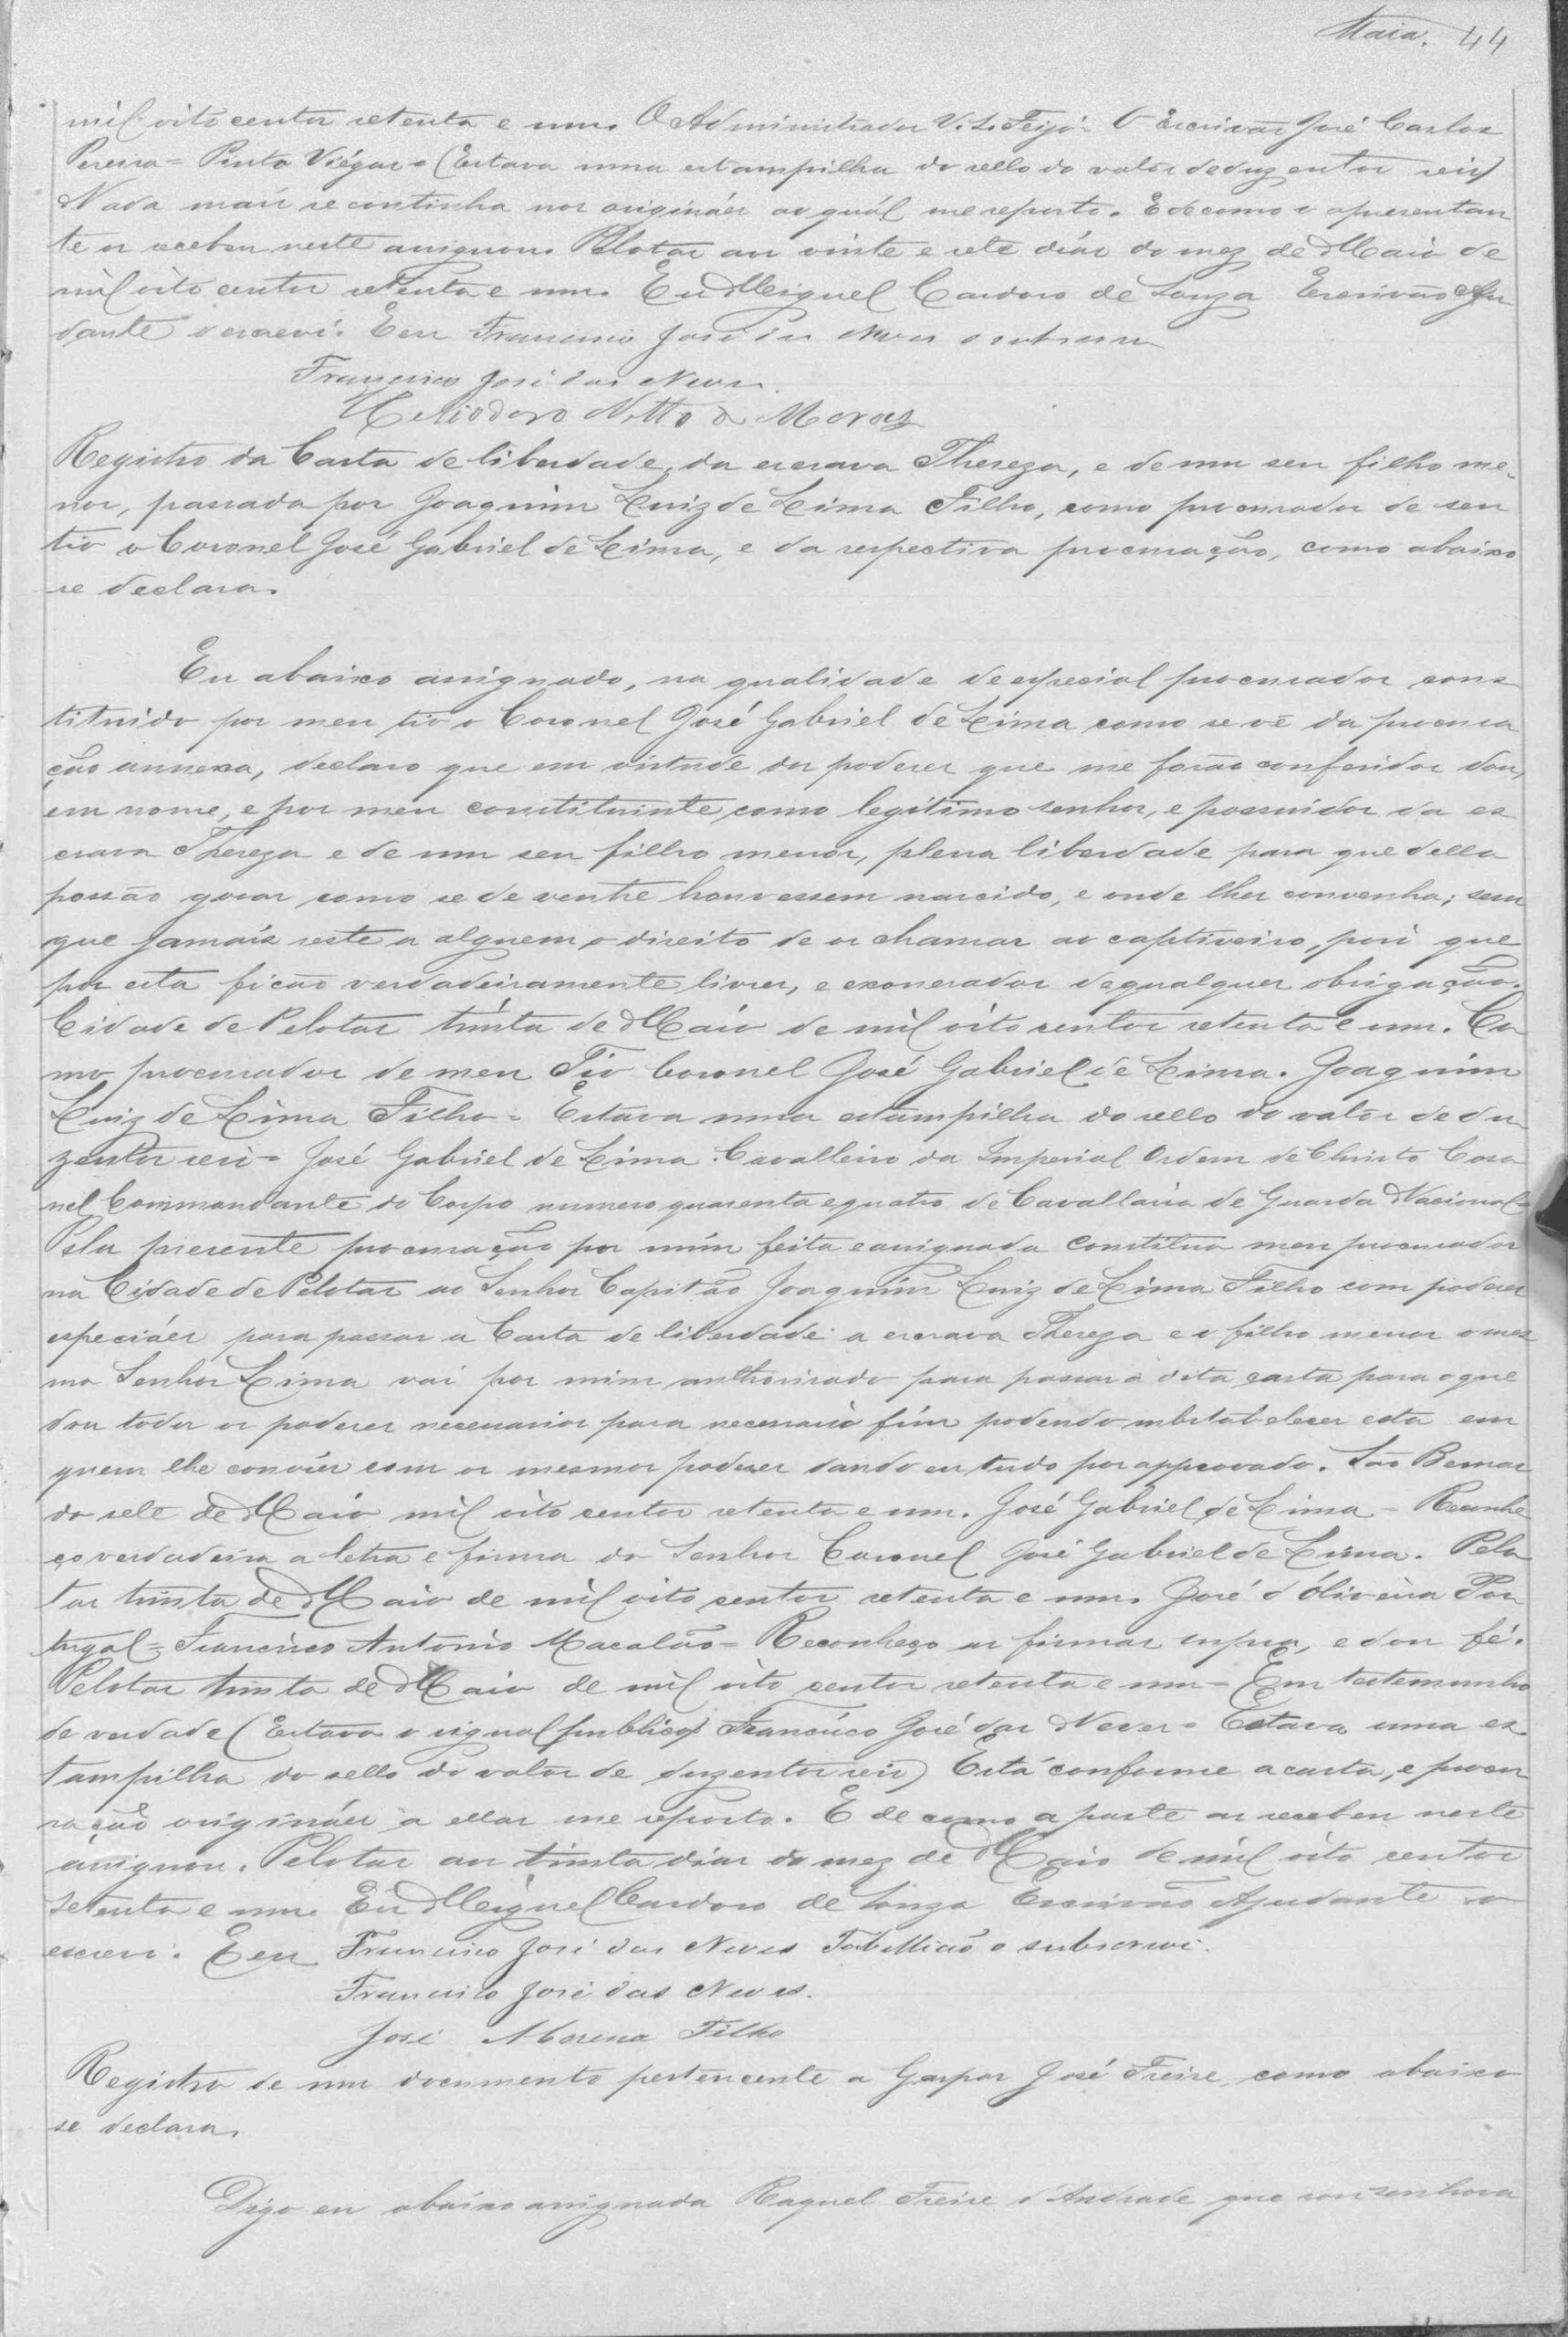 Maia. 44
mil oito centos setenta e um. O Administrador V. L. Feijó = O Escrivão José Carlos
Pereira = Pinto Viégas = (Estava uma estampilha do sello do valor de duzentos reis)
Nada mais se continha nos origináes ao quál me reporto. E de como o apresentan
te os recebeu neste assignou. Pelotas aos vinte e sete dias do mez de Maio de
mil oito centos setenta e um. Eu Miguel Cardoso de Souza Escrivão Aju
dante o escreví. E eu Francisco José das Neves o subscrevi
Francisco José das Neves.
Heliodoro Netto de Moraes
Registro da Carta de liberdade, da escrava Thereza, e de um seu filho me-
nor, passada por Joaquim Luiz de Lima Filho, como procurador de seu
tio o Coronel José Gabriel de Lima, e da respectiva procuração, como abaixo
se declara.
Eu abaixo assignado, na qualidade de especial procurador cons
tituido por meu tio o Coronel José Gabriel de Lima como se vê da procura
ção annexa, declaro que em virtude dos poderes que me forão conferidos dou,
em nome, e por meu constituinte, como legitimo senhor, e possuidor da es
crava Thereza e de um seu filho menor, plena liberdade para que della
possão gosar como se de ventre houvessem nascido, e onde lhes convenha; sem
que jamais reste a alguem o direito de os chamar ao captiveiro, pois que
por esta ficão verdadeiramente livres, e exonerados de qualquer obrigação.
Cidade de Pelotas trinta de Maio de mil oito centos setenta e um. Co
mo procurador de meu Tio Coronel José Gabriel de Lima. Joaquim
Luiz de Lima Filho = Estava uma estampilha do sello do valor de du
zentos reis = José Gabriel de Lima Cavalleiro da Imperial Ordem de Christo Coro
nel Commandante do Corpo numero quarenta e quatro de Cavallaria de Guarda Nacional =
Pela presente procuração por mim feita e assignada constituo meu procurador
na Cidade de Pelotas ao Senhor Capitão Joaquim Luiz de Lima Filho com poderes
especiáes para passar a Carta de liberdade a escrava Thereza e o filho menor o mes
mo Senhor Lima vai por mim authorisado para passar a dita carta para o que
dou todos os poderes necessarios para necessario fim podendo substabelecer esta em
quem lhe convier com os mesmos poderes dando eu tudo por approvado. São Bernar
do sete de Maio mil oito centos setenta e um. José Gabriel de Lima = Reconhe
ço verdadeira a letra e firma do Senhor Coronel José Gabriel de Lima. Pelo
tas trinta de Maio de mil oito centos setenta e um. José d'Oliveira Por
tugal = Francisco Antonio Macalão = Reconheço as firmas supra, e dou fé.
Pelotas trinta de Maio de mil oito centos setenta e um = Em testemunho
de verdade (Estava o signal publico) Francisco José das Neves = Estava uma es
tampilha do sello do valor de duzentos reis) Está conforme a carta, e procu
ração origináes a ellas me reporto. E de como a parte as recebeu neste
assignou. Pelotas aos trinta dias do mez de Maio de mil oito centos
setenta e um. Eu Miguel Cardoso de Souza Escrivão Ajudante o
escrevi. E eu Francisco José das Neves Tabellião o subscrevi.
Francisco José das Neves.
José Moreira Filho
Registro de um documento pertencente a Gaspar José Freire, como abaixo
se declara.
Digo eu abaixo assignada Raquel Freire d'Andrade que sou senhora